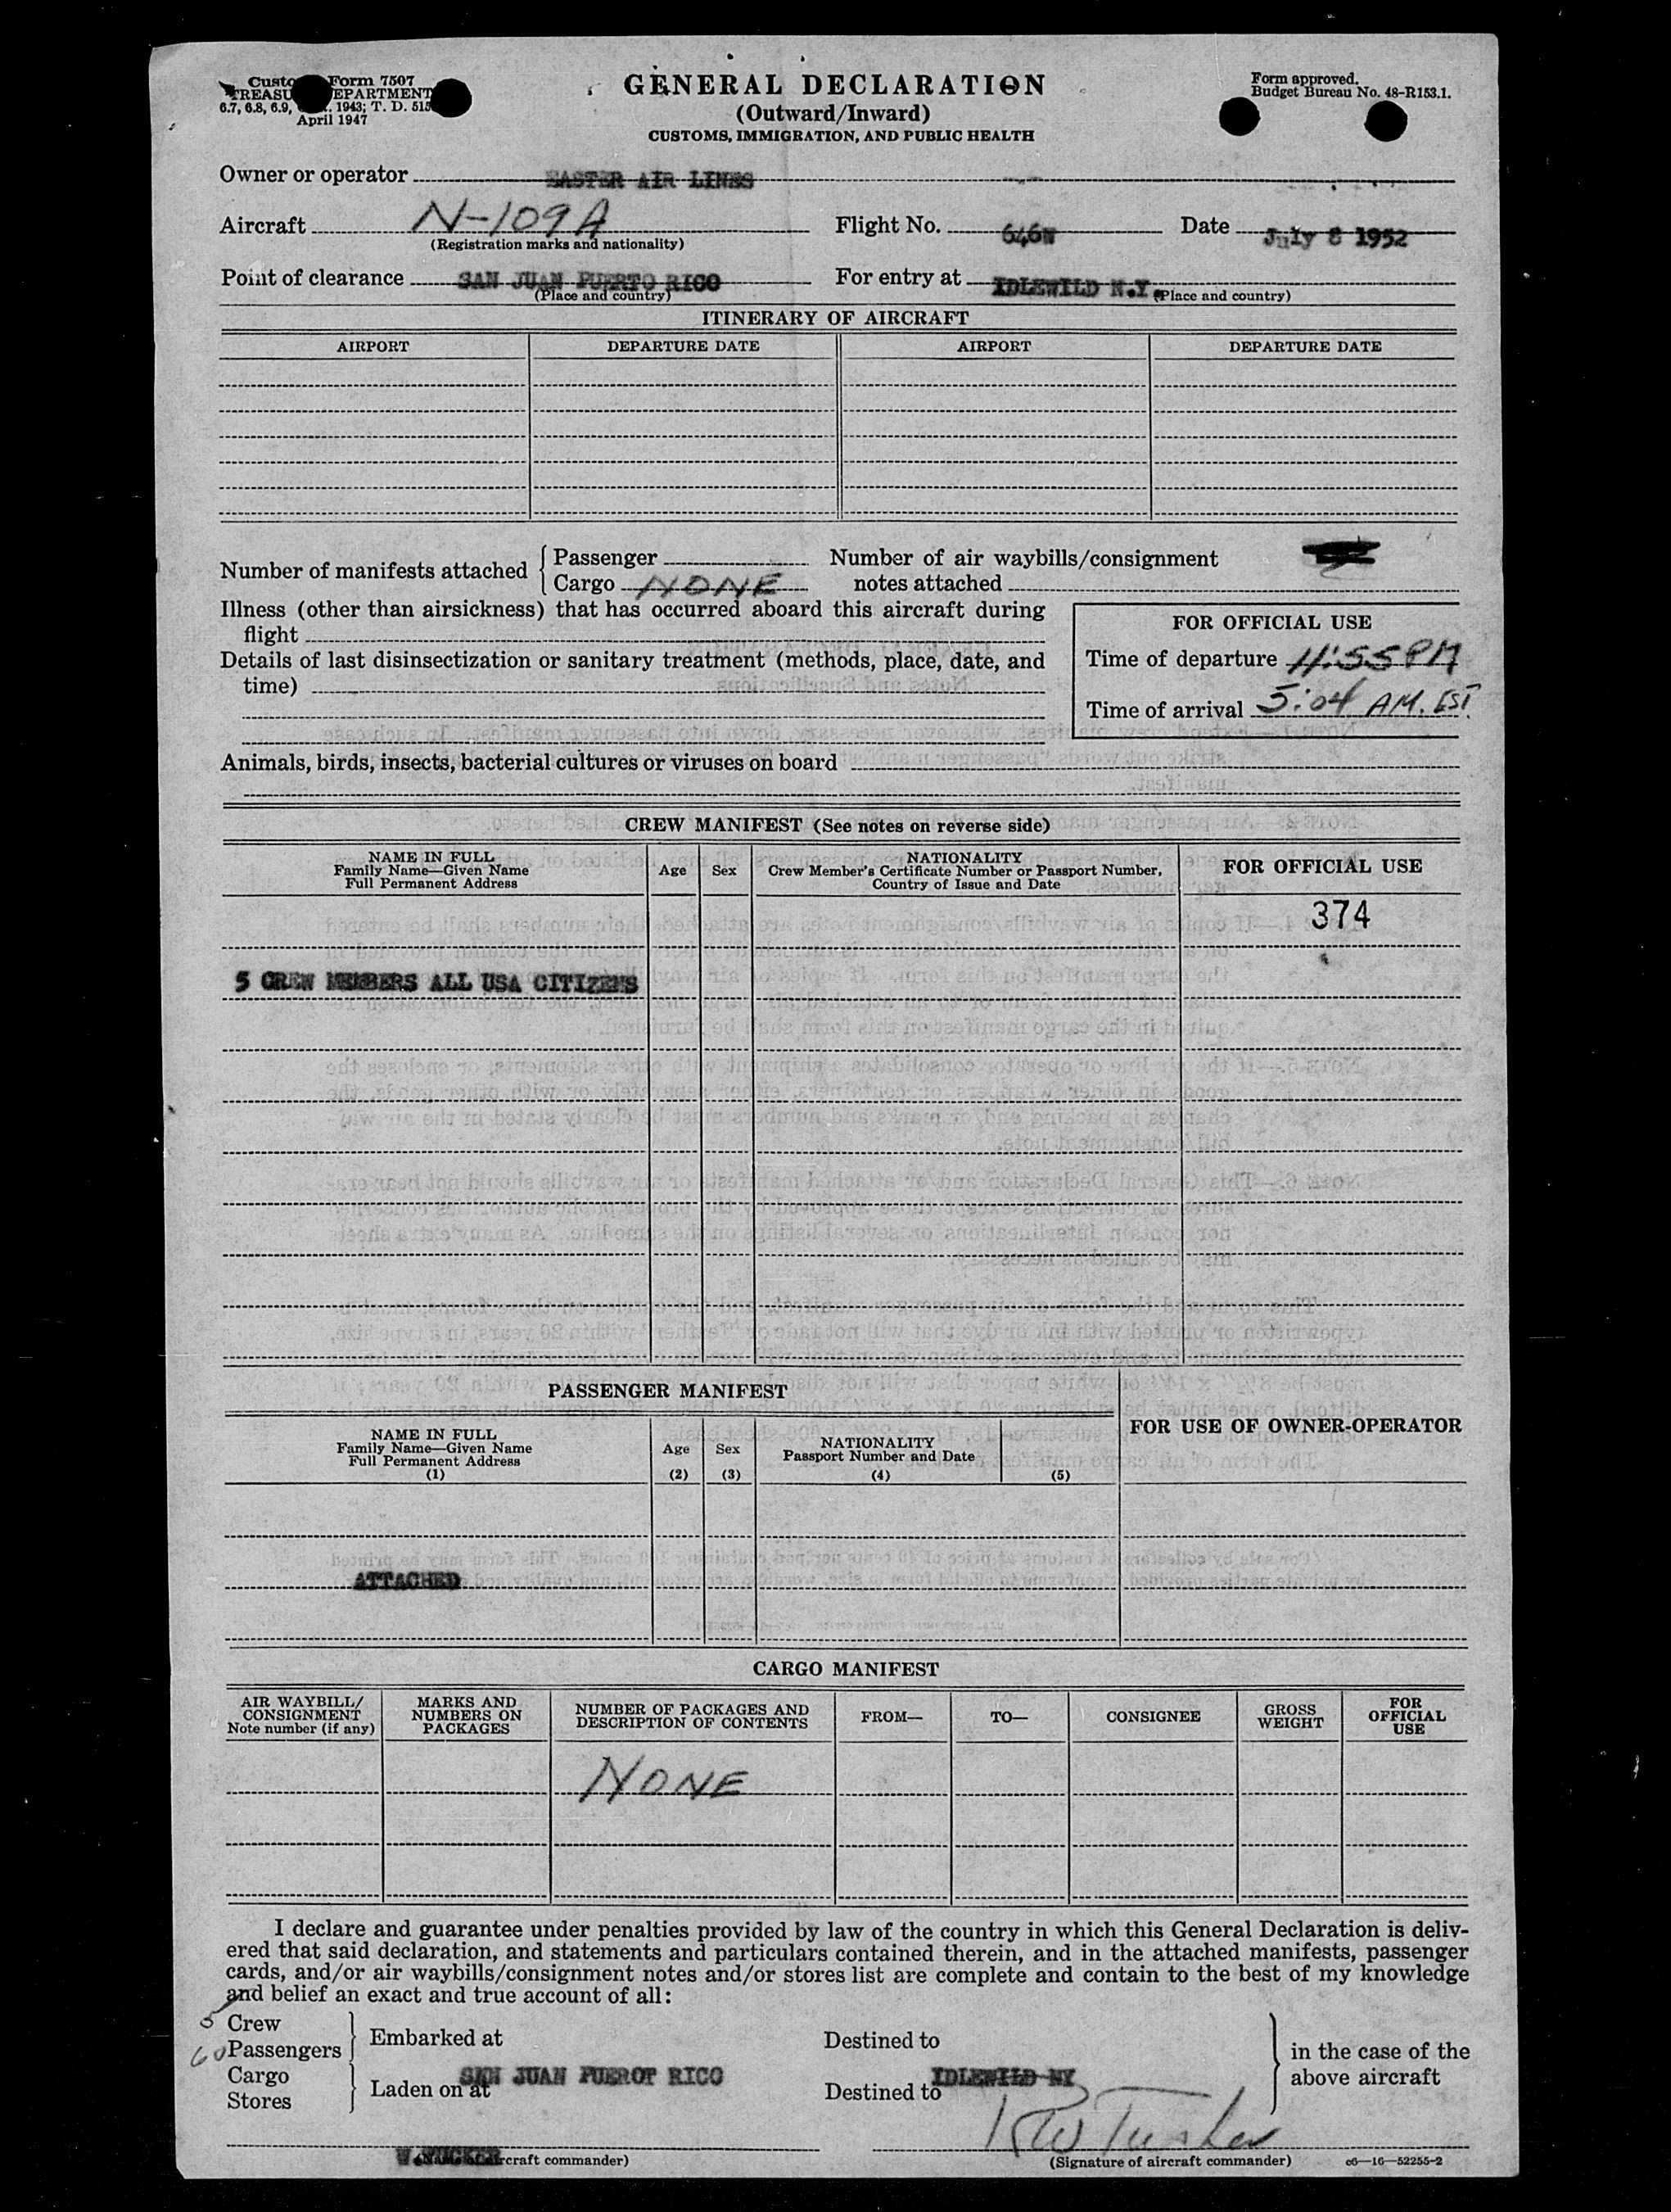 Custo Form 7507
TREASU EPARTMENT
6.7, 6.8, 6.9, 1943; T. D. 515
April 1947
GENERAL DECLARATION
(Outward/Inward)
CUSTOMS, IMMIGRATION, AND PUBLIC HEALTH
Form approved.
Budget Bureau No. 48-R153.1.
Owner or operator EASTER AIR LINES
Aircraft N-109A Flight No. 646W Date July 8 1952
(Registration marks and nationality)
Point of clearance SAN JUAN PUERTO RICO For entry at IDLEWILD N.Y.
(Place and country) (Place and country)
ITINERARY OF AIRCRAFT
AIRPORT DEPARTURE DATE AIRPORT DEPARTURE DATE
Number of manifests attached Passenger
Cargo NONE
Number of air waybills/consignment
notes attached
Illness (other than airsickness) that has occurred aboard this aircraft during
flight
Details of last disinsectization or sanitary treatment (methods, place, date, and
time)
FOR OFFICIAL USE
Time of departure 11:55 PM
Time of arrival 5:04 AM. EST.
Animals, birds, insects, bacterial cultures or viruses on board
CREW MANIFEST (See notes on reverse side)
NAME IN FULL
Family Name—Given Name
Full Permanent Address
Age
Sex
NATIONALITY
Crew Member's Certificate Number or Passport Number,
Country of Issue and Date
FOR OFFICIAL USE
374
5 CREW MEMBERS ALL USA CITIZENS
PASSENGER MANIFEST
FOR USE OF OWNER-OPERATOR
NAME IN FULL
Family Name—Given Name
Full Permanent Address
(1)
Age
(2)
Sex
(3)
NATIONALITY
Passport Number and Date
(4)
(5)
ATTACHED
CARGO MANIFEST
AIR WAYBILL/
CONSIGNMENT
Note number (if any)
MARKS AND
NUMBERS ON
PACKAGES
NUMBER OF PACKAGES AND
DESCRIPTION OF CONTENTS
FROM—
TO—
CONSIGNEE
GROSS
WEIGHT
FOR
OFFICIAL
USE
NONE
I declare and guarantee under penalties provided by law of the country in which this General Declaration is deliv-
ered that said declaration, and statements and particulars contained therein, and in the attached manifests, passenger
cards, and/or air waybills/consignment notes and/or stores list are complete and contain to the best of my knowledge
and belief an exact and true account of all:
5 Crew
60 Passengers
Cargo
Stores
Embarked at
SAN JUAN PUEROT RICO
Laden on at
Destined to
IDLEWILD NY
Destined to
in the case of the
above aircraft
W. TUCKER
aircraft commander)
(Signature of aircraft commander)
c6—16—52255-2